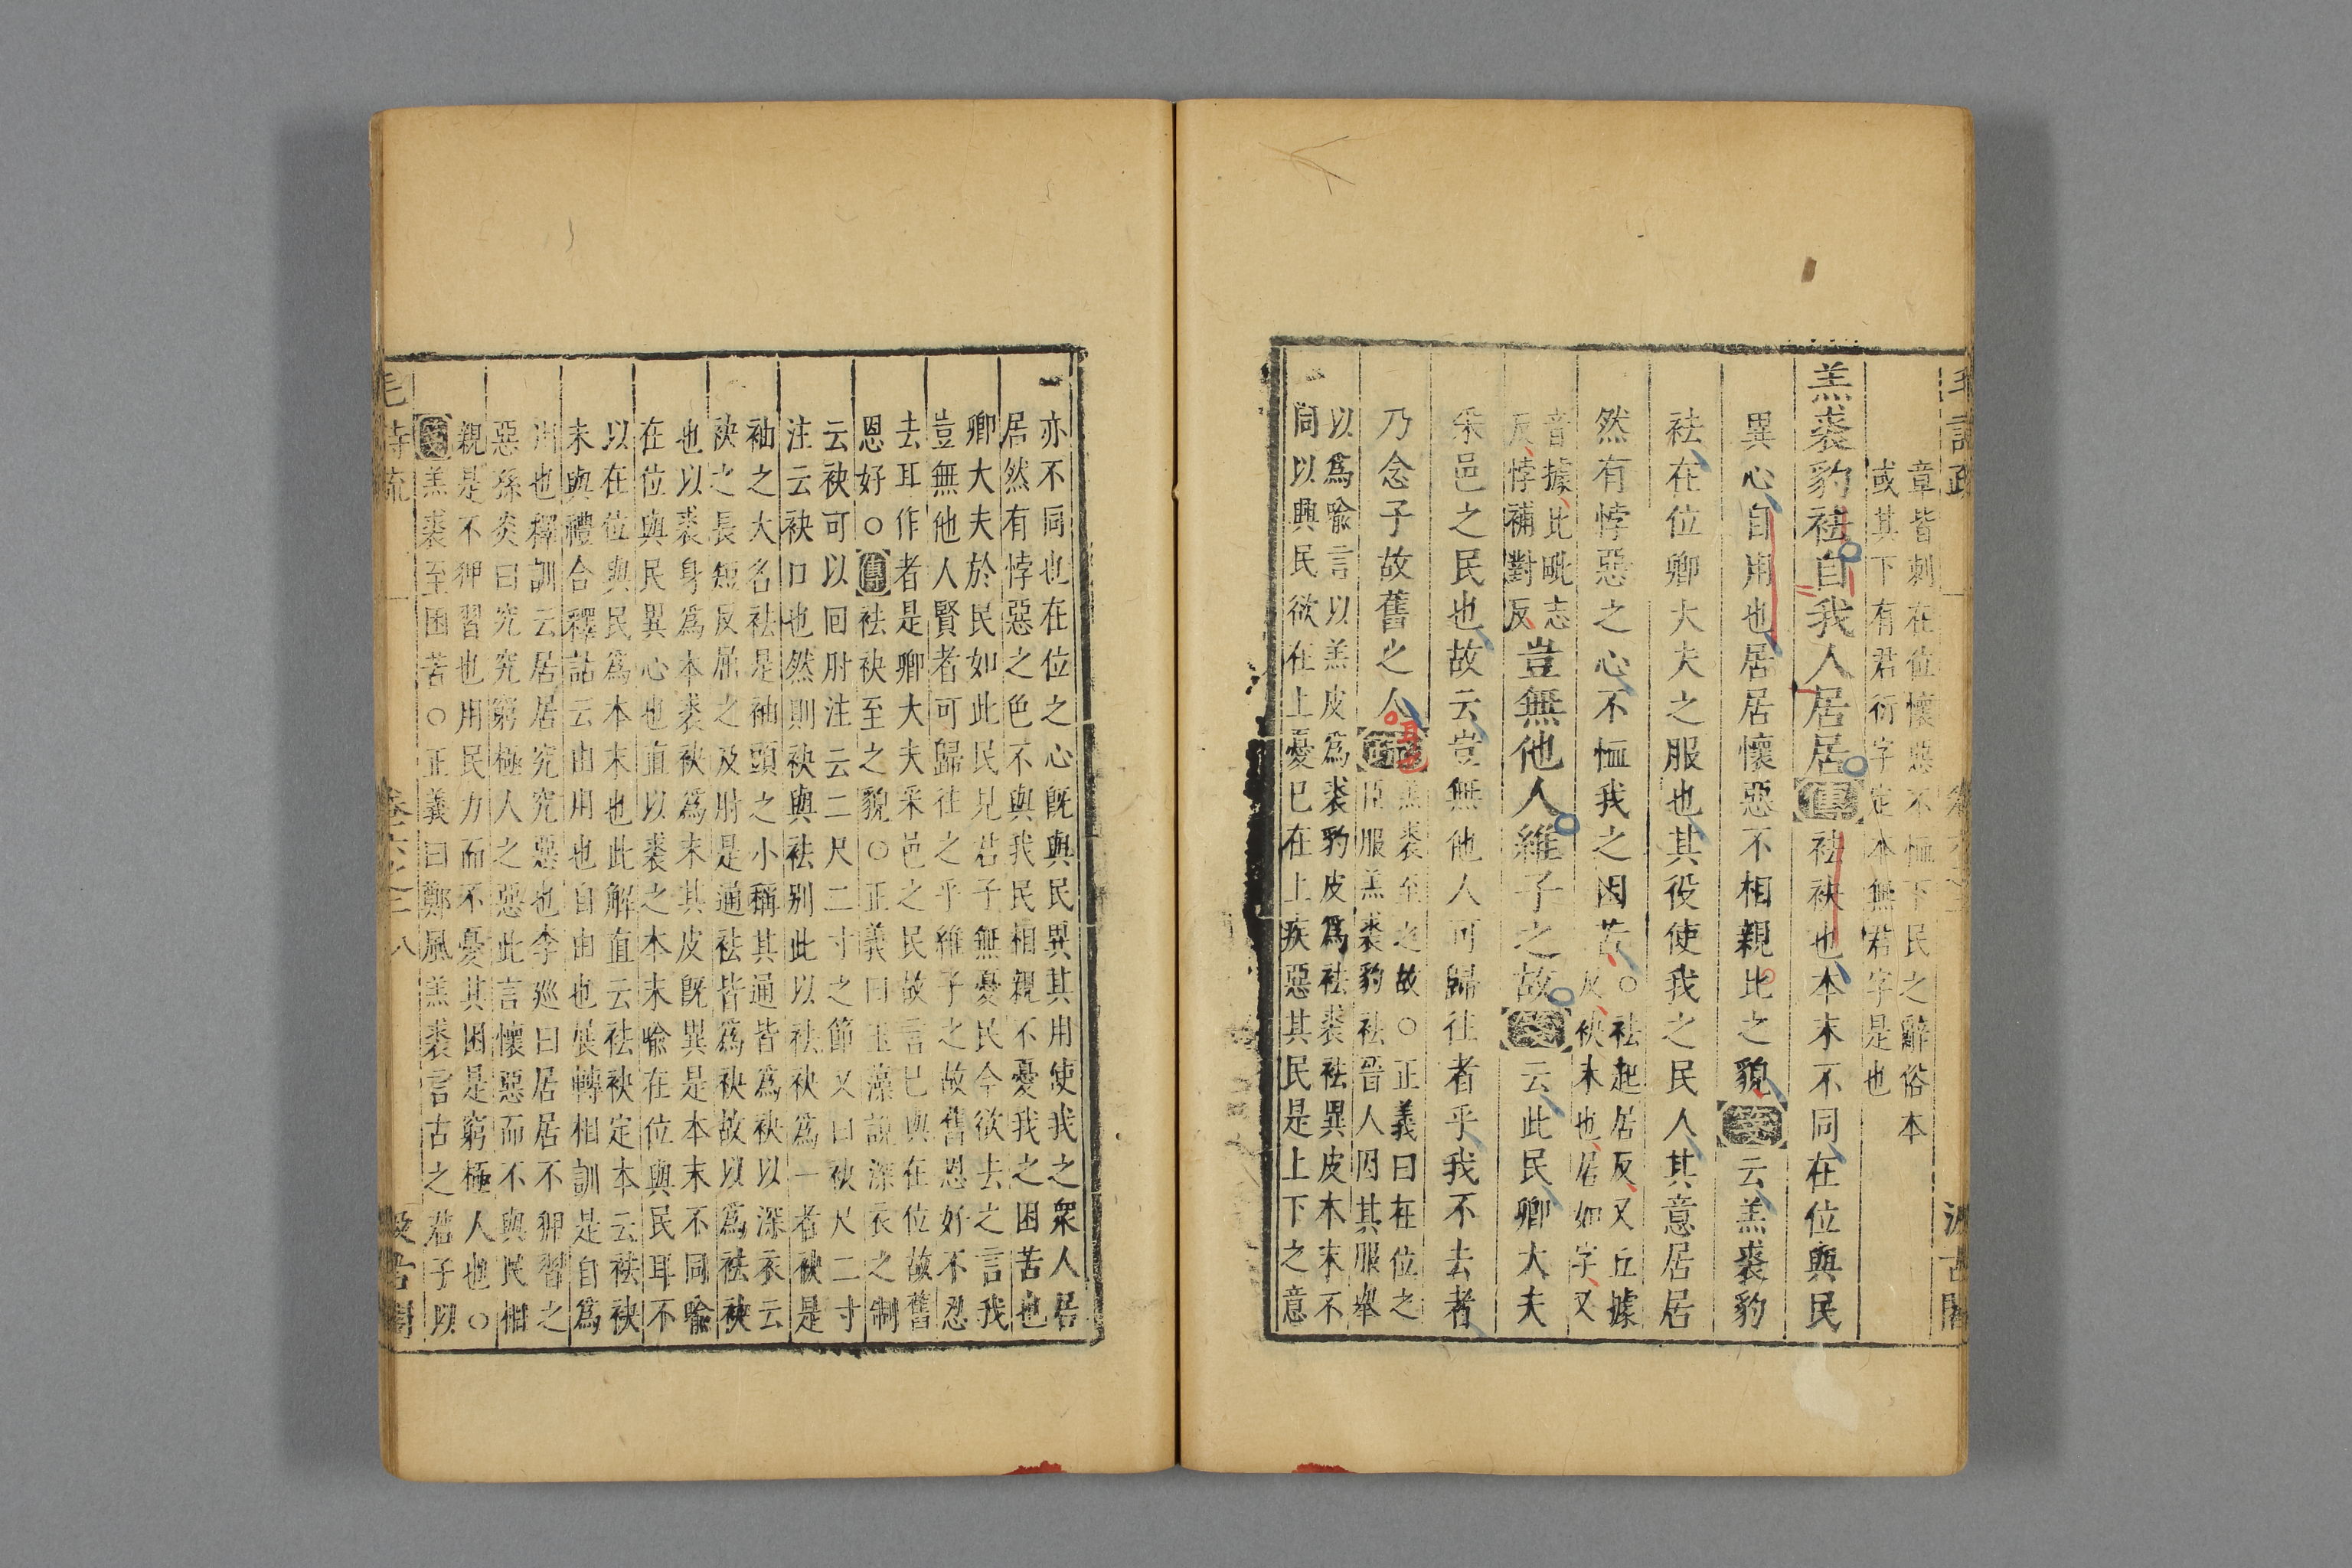 毛詩疏
卷六之二
汲古閣
章皆刺在位懷惡不恤下民之辭俗本
或其下有君衍字定本無君字是也
羔裘豹袪自我人居居傳袪袂也本末不同在位與民
異心自用也居居懷惡不相親比之貌箋云羔裘豹
袪在位卿大夫之服也其役使我之民人其意居居
然有悖惡之心不恤我之困苦○袪起居反又丘據
反袂末也居如字又
音據比毗志
反悖補對反豈無他人維子之故箋云此民卿大夫
采邑之民也故云豈無他人可歸往者乎我不去者
乃念子故舊之人疏羔裘至之故○正義曰在位之
臣服羔裘豹袪晉人因其服舉
以爲喩言以羔皮爲裘豹皮爲袪裘袪異皮本末不
同以興民欲在上憂已在上疾惡其民是上下之意
亦不同也在位之心旣與民異其用使我之衆人居
居然有悖惡之色不與我民相親不憂我之困苦也
卿大夫於民如此民見君子無憂民今欲去之言我
豈無他人賢者可歸往之乎維子之故舊恩好不忍
去耳作者是卿大夫采邑之民故言已與在位故舊
恩好○傳袪袂至之貌○正義曰玉藻說深衣之制
云袂可以囘肘注云二尺二寸之節又曰袂尺二寸
注云袂口也然則袂與袪别此以袪袂爲一者袂是
袖之大名袪是袖頭之小稱其通皆爲袂以深衣云
袂之長短反屈之及肘是通袪皆爲袂故以爲袪袂
也以裘身爲本裘袂爲末其皮旣異是本末不同喩
在位與民異心也直以裘之本末喩在位與民耳不
以在位與民爲本末也此解直云袪袂定本云袪袂
末與禮合釋詁云由用也自由也展轉相訓是自爲
用也釋訓云居居究究惡也李廵曰居居不狎習之
惡孫炎曰究究窮極人之惡此言懷惡而不與民相
親是不狎習也用民力而不憂其困是窮極人也○
箋羔裘至困苦○正義曰鄭風羔裘言古之君子以
毛詩疏
卷六之二
八
汲古閣